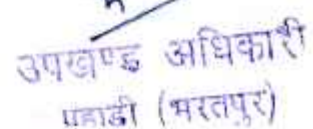 उपखण्ड अधिकारी
पहाडी (भरतपुर)